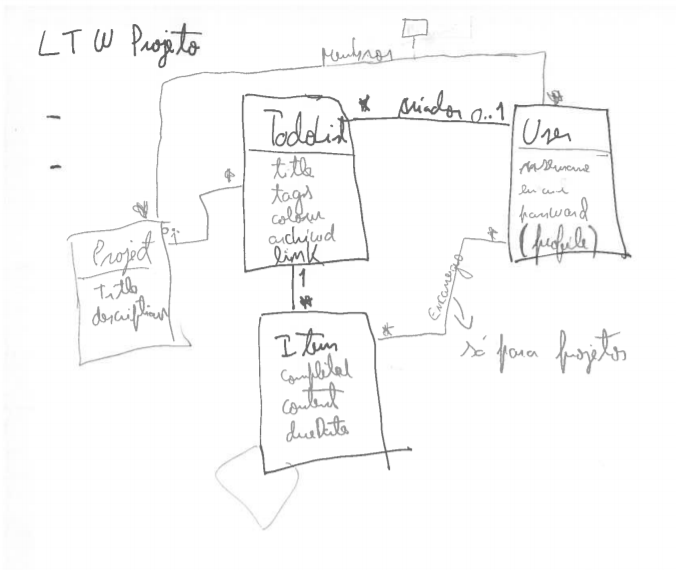 LTW Projeto
Membros
-
-
* criador 0..1
TodoList
title
tags
colour
archived
link
User
username
email
password
(profile)
*
*
*
Project
Title
description
1
*
Item
completed
content
dueDate
*
*
só para projetos